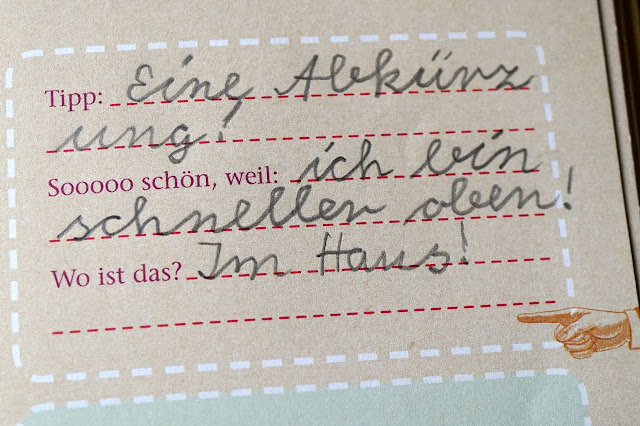 Tipp: Eine Abkürz
ung!
Sooooo schön, weil: ich bin
schneller oben!
Wo ist das? Im Haus!